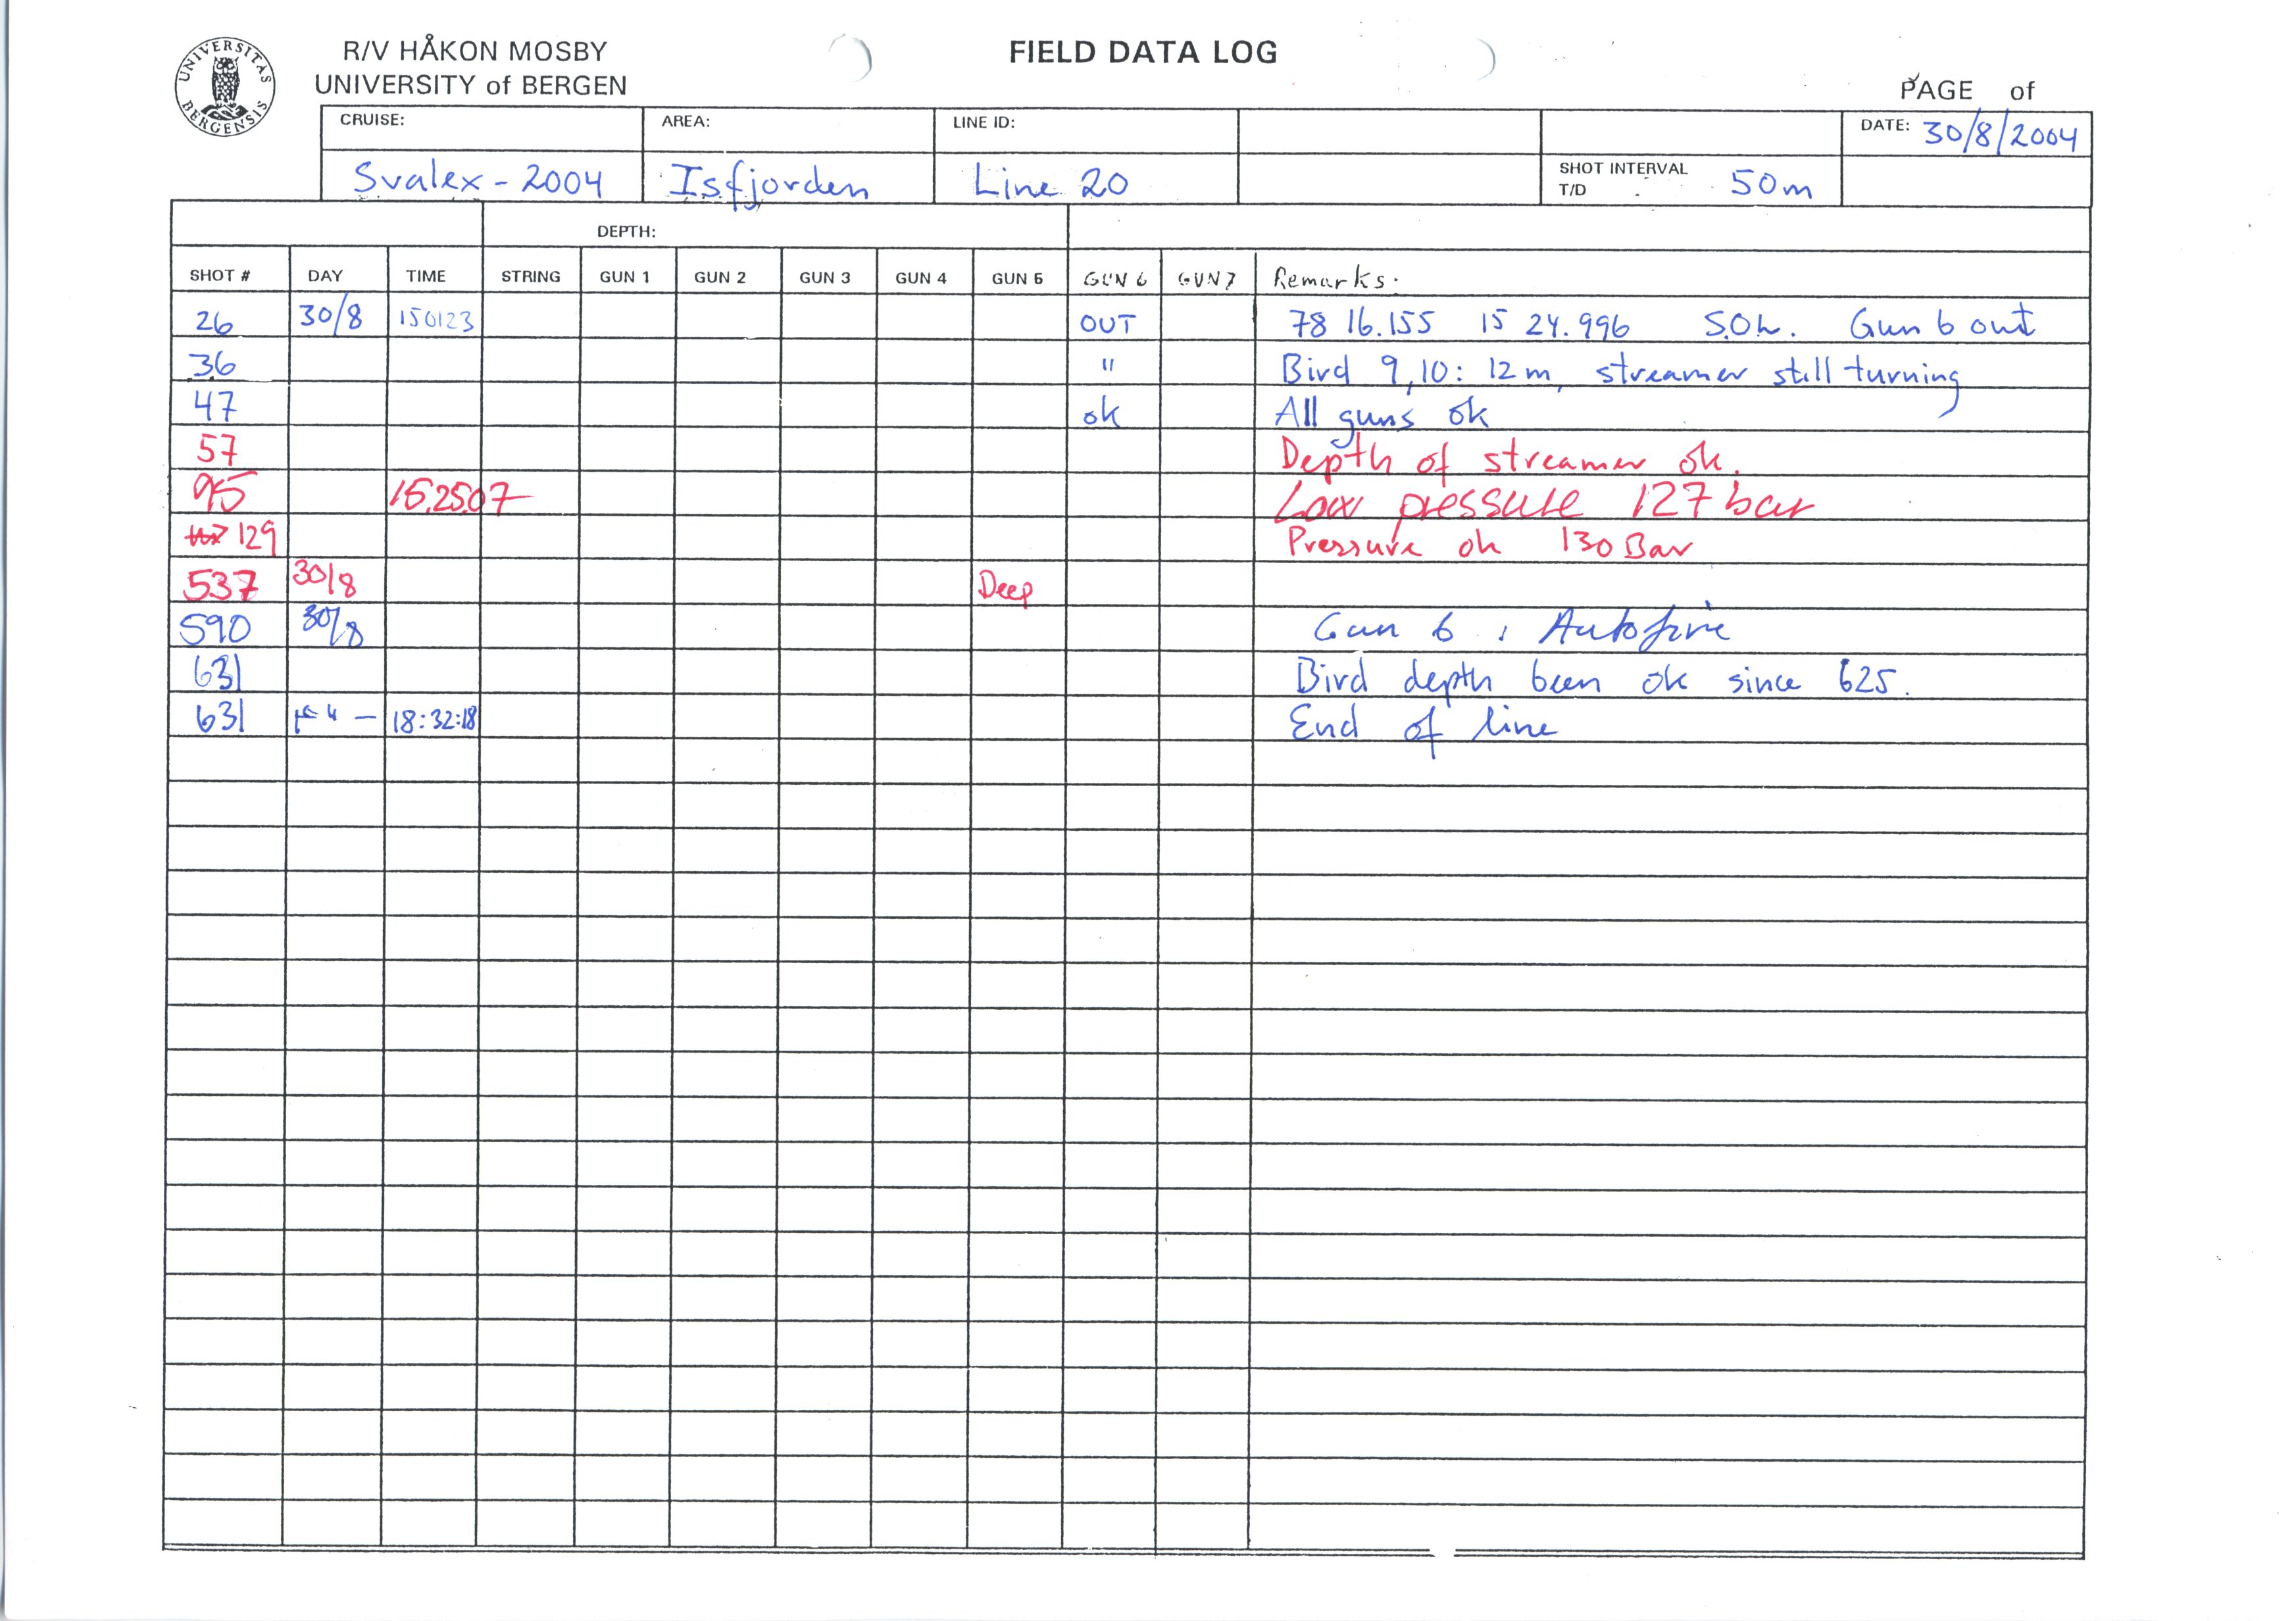 UNIVERSITAS BERGENSIS
R/V HÅKON MOSBY
UNIVERSITY of BERGEN
FIELD DATA LOG
PAGE of
CRUISE: AREA: LINE ID: DATE: 30/8/2004
Svalex - 2004 Isfjorden Line 20 SHOT INTERVAL T/D 50m
DEPTH:
SHOT # DAY TIME STRING GUN 1 GUN 2 GUN 3 GUN 4 GUN 5 GUN 6 GUN 7 Remarks:
26 30/8 150123 OUT 78 16.155 15 24.996 S.O.L. Gun 6 out
36 " Bird 9,10: 12m, streamer still turning
47 ok All guns ok
57 Depth of streamer ok.
95 15.25.07 Low pressure 127 bar
129 Pressure ok 130 Bar
537 30/8 Deep
590 30/8 Gun 6 : Autofire
631 Bird depth been ok since 625.
631 18:32:18 End of line